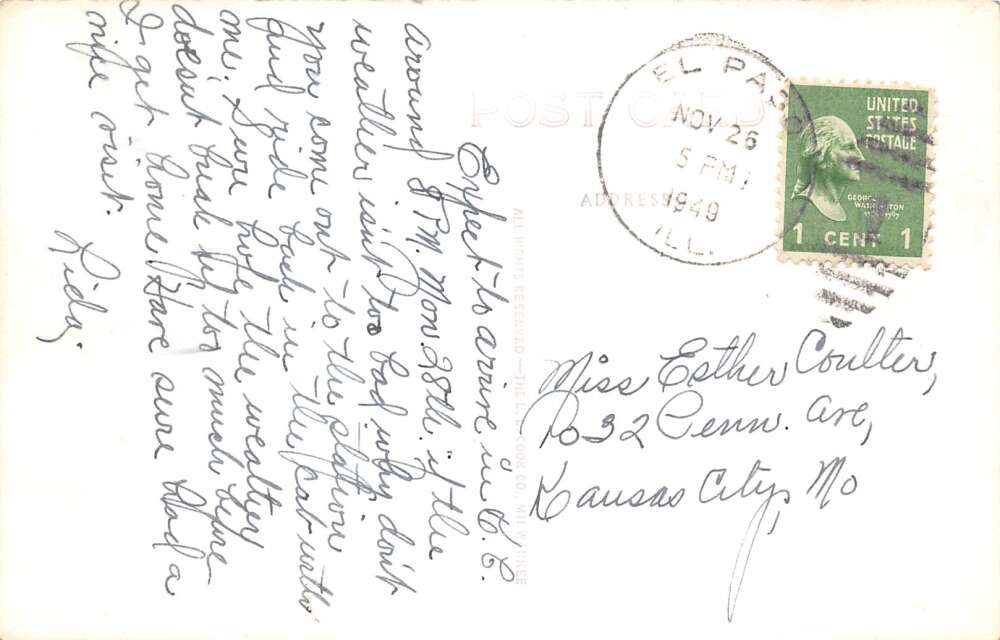 POST CARD
ADDRESS
EL PASO
NOV 26
5 PM
1949
ILL.
UNITED
STATES
POSTAGE
GEORGE
WASHINGTON
1 CENT 1
Expect to arrive in K.C.
around 8 P.M. Mon. 28th. if the
weather isn't too bad why don't
you come out to the station
and ride back in the cab with
me. Sure hope the weather
doesn't bust up too much before
I get home. Have sure had a
nice visit.
Lida.
Miss Esther Coulter,
2032 Penn. Ave,
Kansas City, Mo
ALL RIGHTS RESERVED — THE L.L. COOK CO., MILWAUKEE